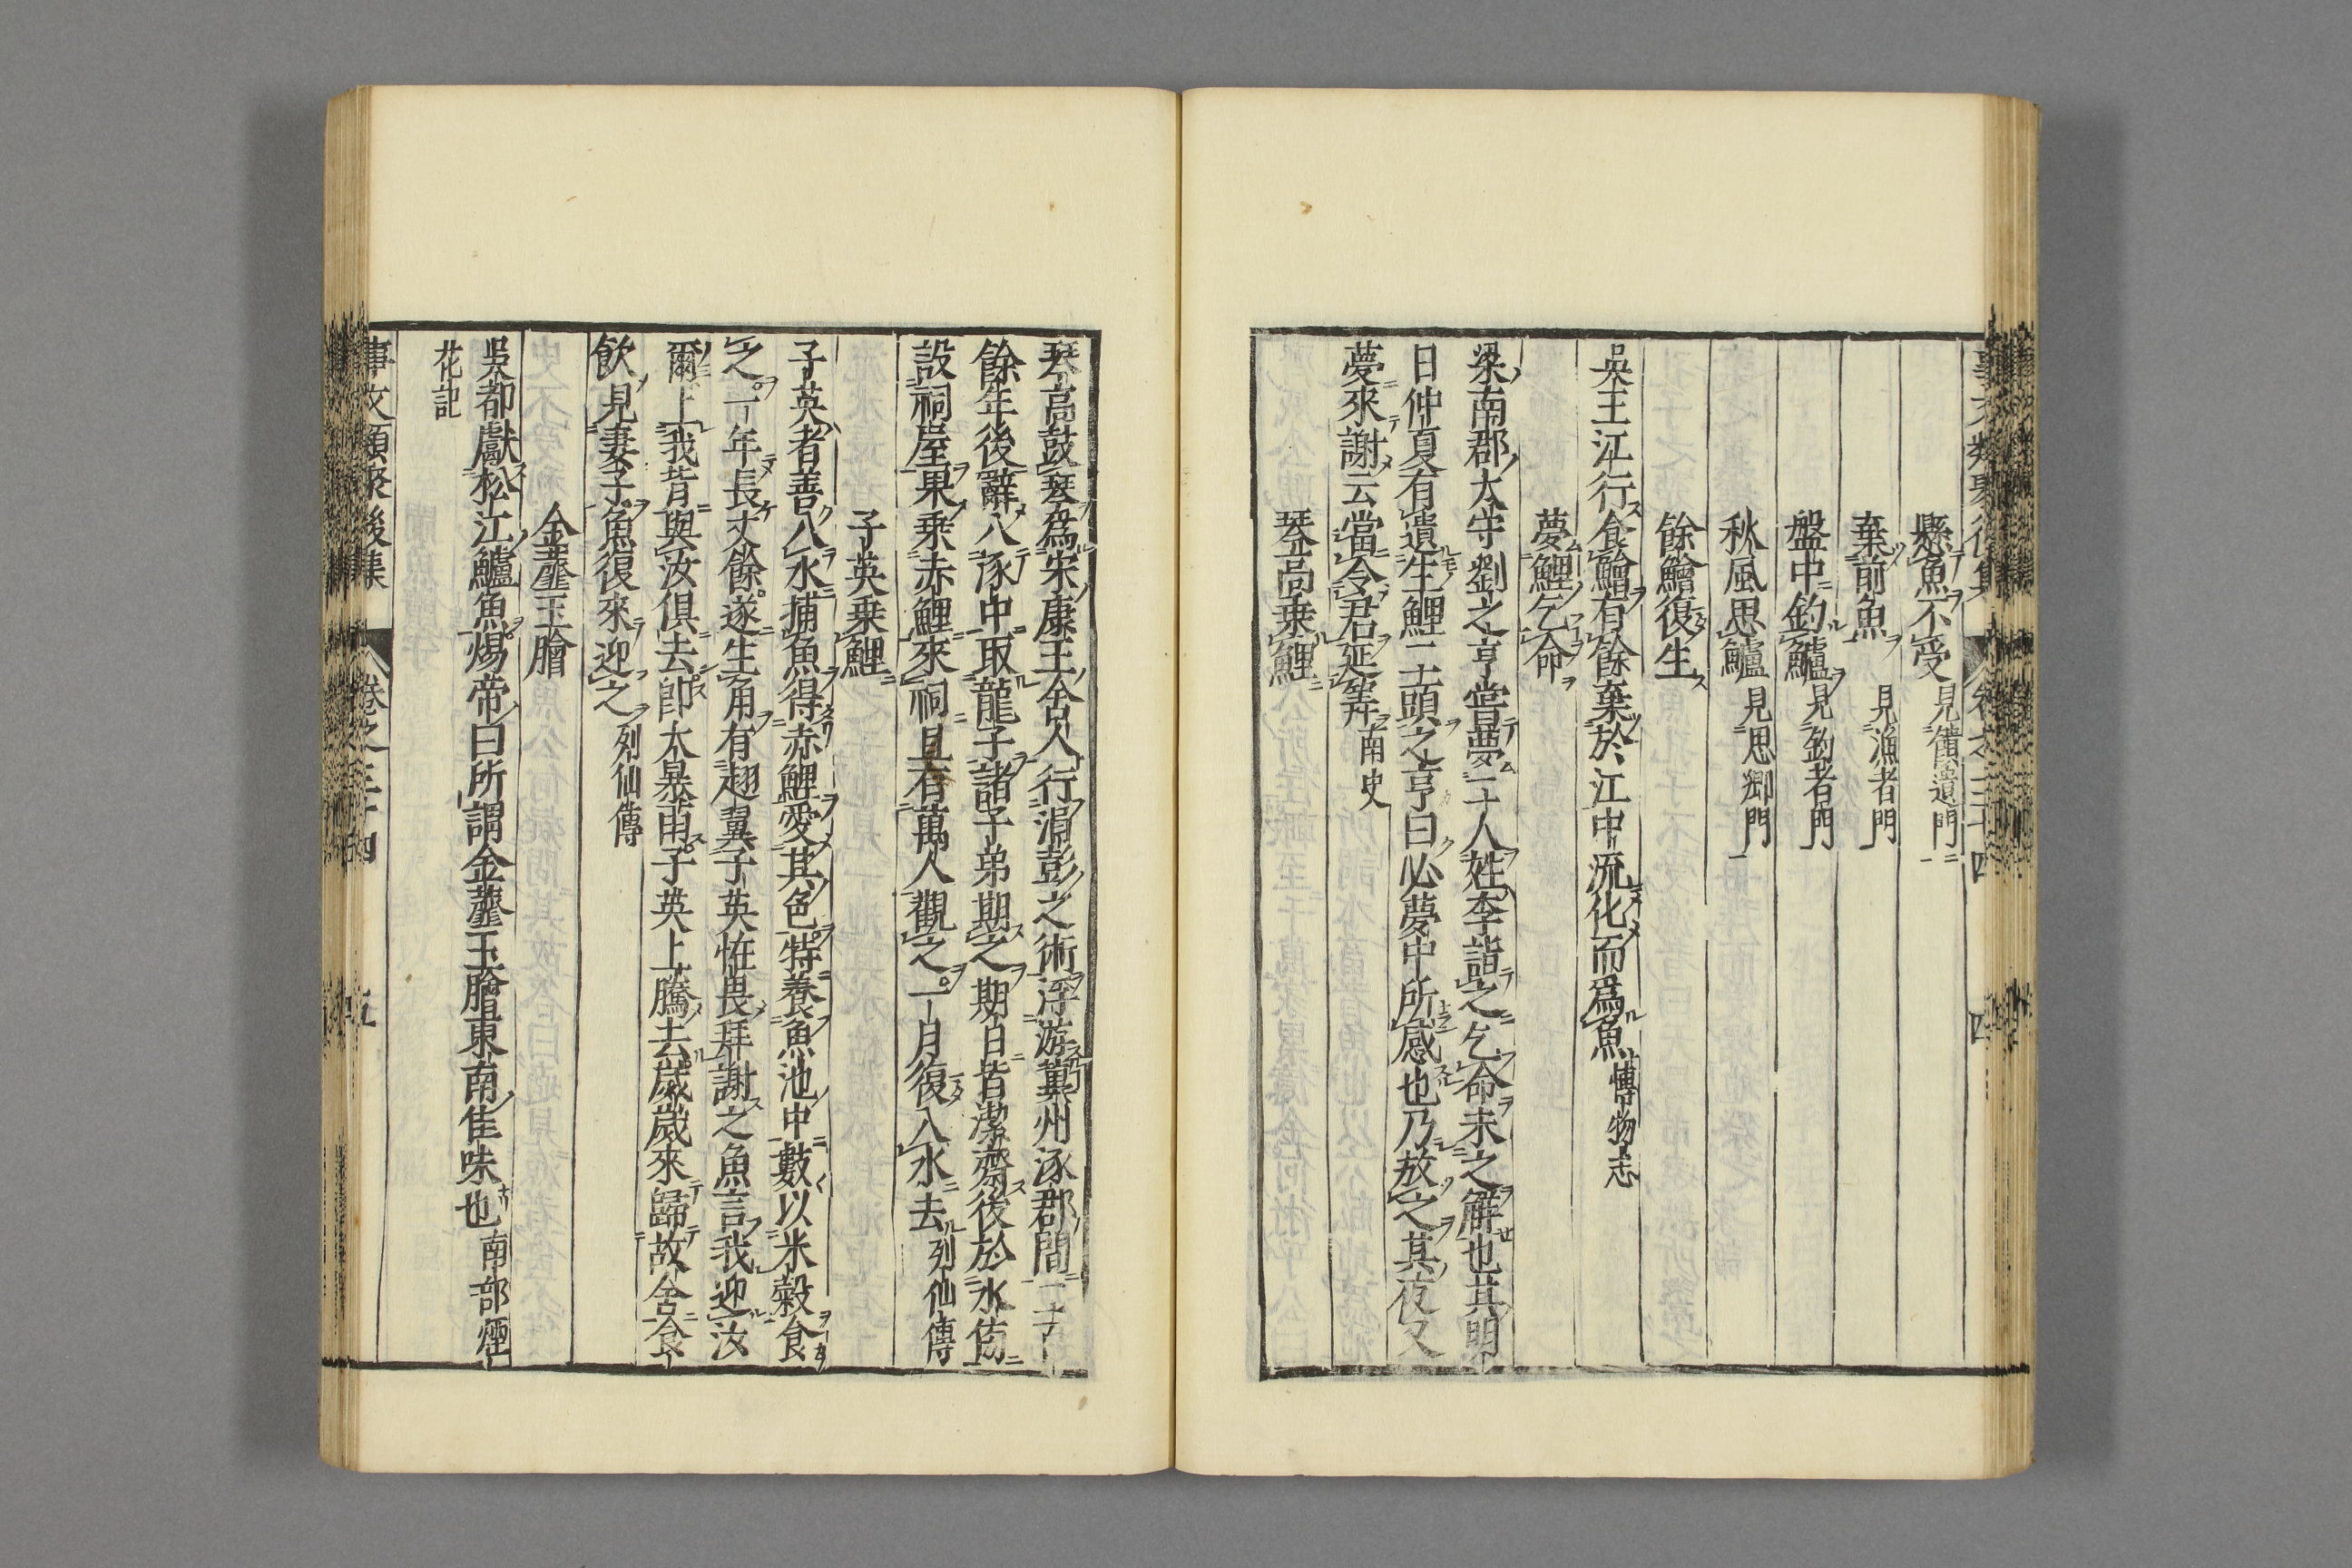 懸魚不受見饋遺門
棄前魚見漁者門
盤中釣鱸見釣者門
秋風思鱸見思鄉門
餘鱠復生
吳王江行食鱠有餘棄於江中流化而爲魚博物志
夢鯉乞命
梁南郡太守劉之亨嘗夢二十人姓李詣之乞命未之解也其明
日仲夏有遺生鯉二十頭之亨曰必夢中所感也乃放之其夜又
夢來謝云當令君延筭南史
琴高乗鯉
琴高鼓琴爲宋康王舍人行涓彭之術浮游冀州涿郡間二十
餘年後辭入涿中取龍子諸子弟期之期日皆潔齋後於水傍
設祠屋果乗赤鯉來祠且有萬人觀之一月復入水去列仙傳
子英乗鯉
子英者善入水捕魚得赤鯉愛其色特養魚池中數以米穀食
之一年長丈餘遂生角有翅翼子英恠畏拜謝之魚言我迎汝
爾上我背與汝俱去即大暴雨子英上騰去歲歲來歸故舍食
飲見妻子魚復來迎之列仙傳
金虀玉膾
吳都獻松江鱸魚煬帝曰所謂金虀玉膾東南佳味也南部煙
花記
事文類聚後集 卷之三十四 五